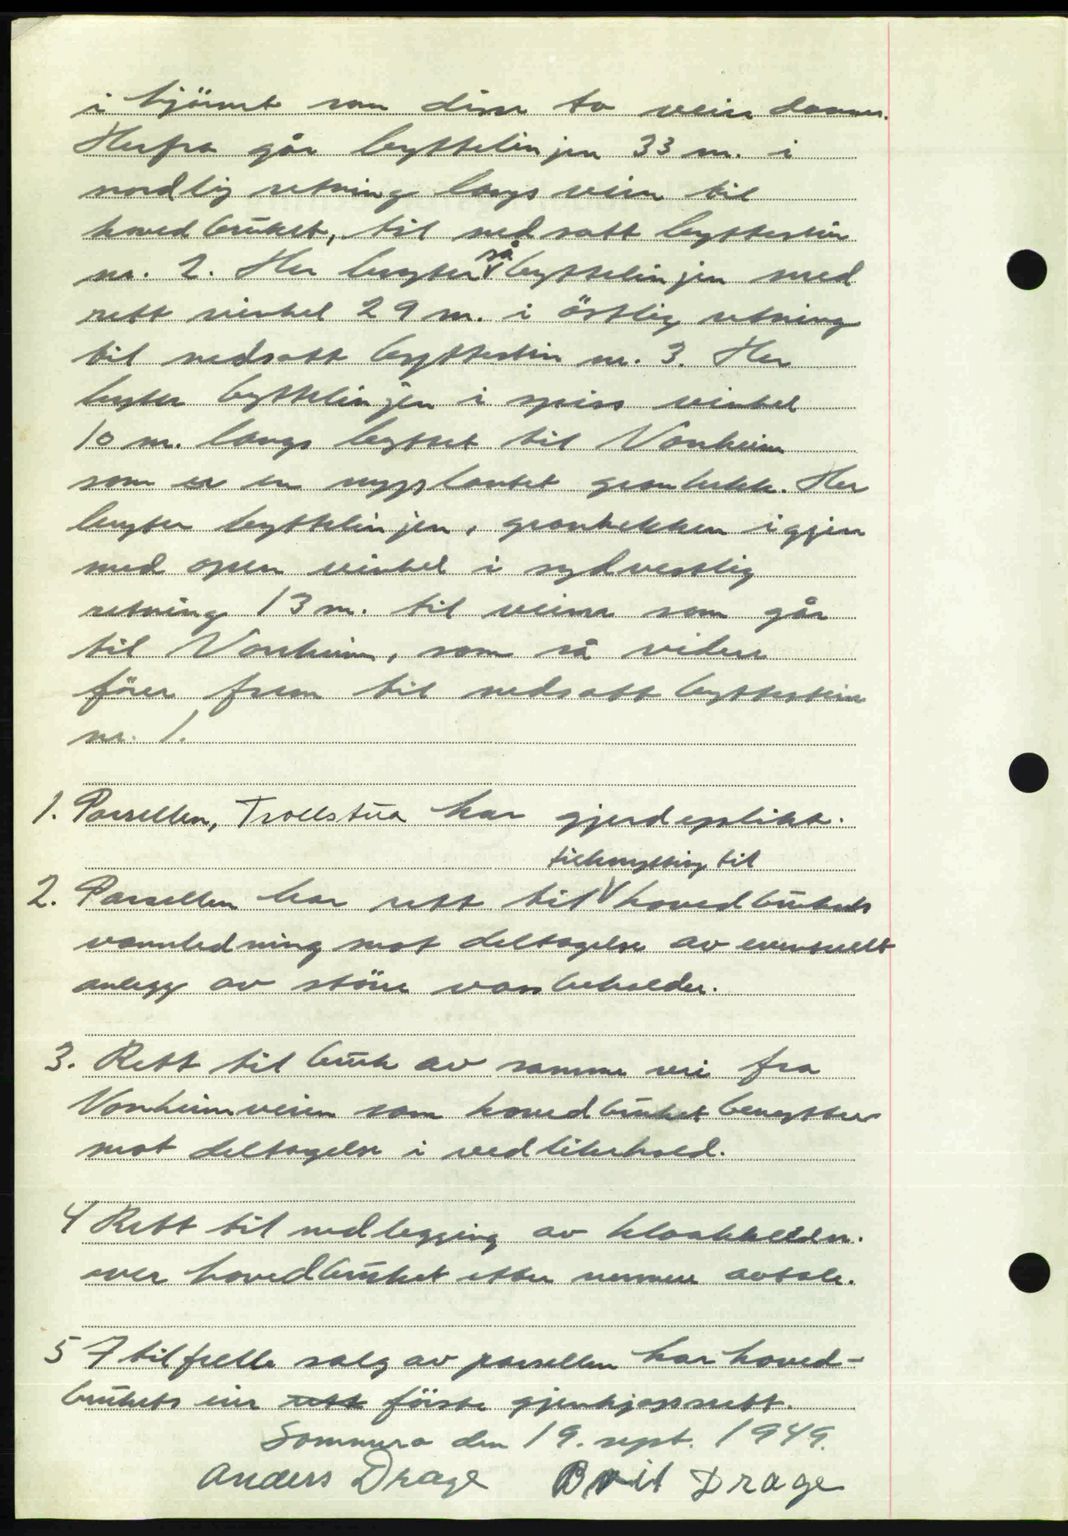 i hjörnet som disse to veier danner.
Herfra går byttelinjen 33 m. i
nordlig retning langs veien til
hovedbrüket, til nedsatt byttestein
nr. 2. Her bryter så byttelinjen med
rett vinkel 29 m. i östlig retning
til nedsatt byttestein nr. 3. Her
bryter byttelinjen i spiss vinkel
10 m. langs byttet til Vonheim
som er en nyplantet granhekk. Her
bryter byttelinjen, granhekken igjen
med open vinkel i sydvestlig
retning 13 m. til veien som går
til Vonheim, som så videre
förer frem til nedsatt byttestein
nr. 1.
1. Parsellen, Trollstüa har gjerdeplikt.
tilknytting til
2. Parsellen har rett til hovedbrükets
vannledning mot deltagelse av eventuelt
anlegg av större vannbeholder.
3. Rett til brük av samme vei fra
Vonheimveien som hovedbrüket benytter
mot deltagelse i vedlikehold.
4 Rett til nedlegging av kloakkledn.
over hovedbrüket etter nermere avtale.
5 I tilfelle salg av parsellen har hoved-
brükets eier rett förste gjenkjøpsrett.
Sommero den 19. sept. 1949.
Anders Drage Brit Drage